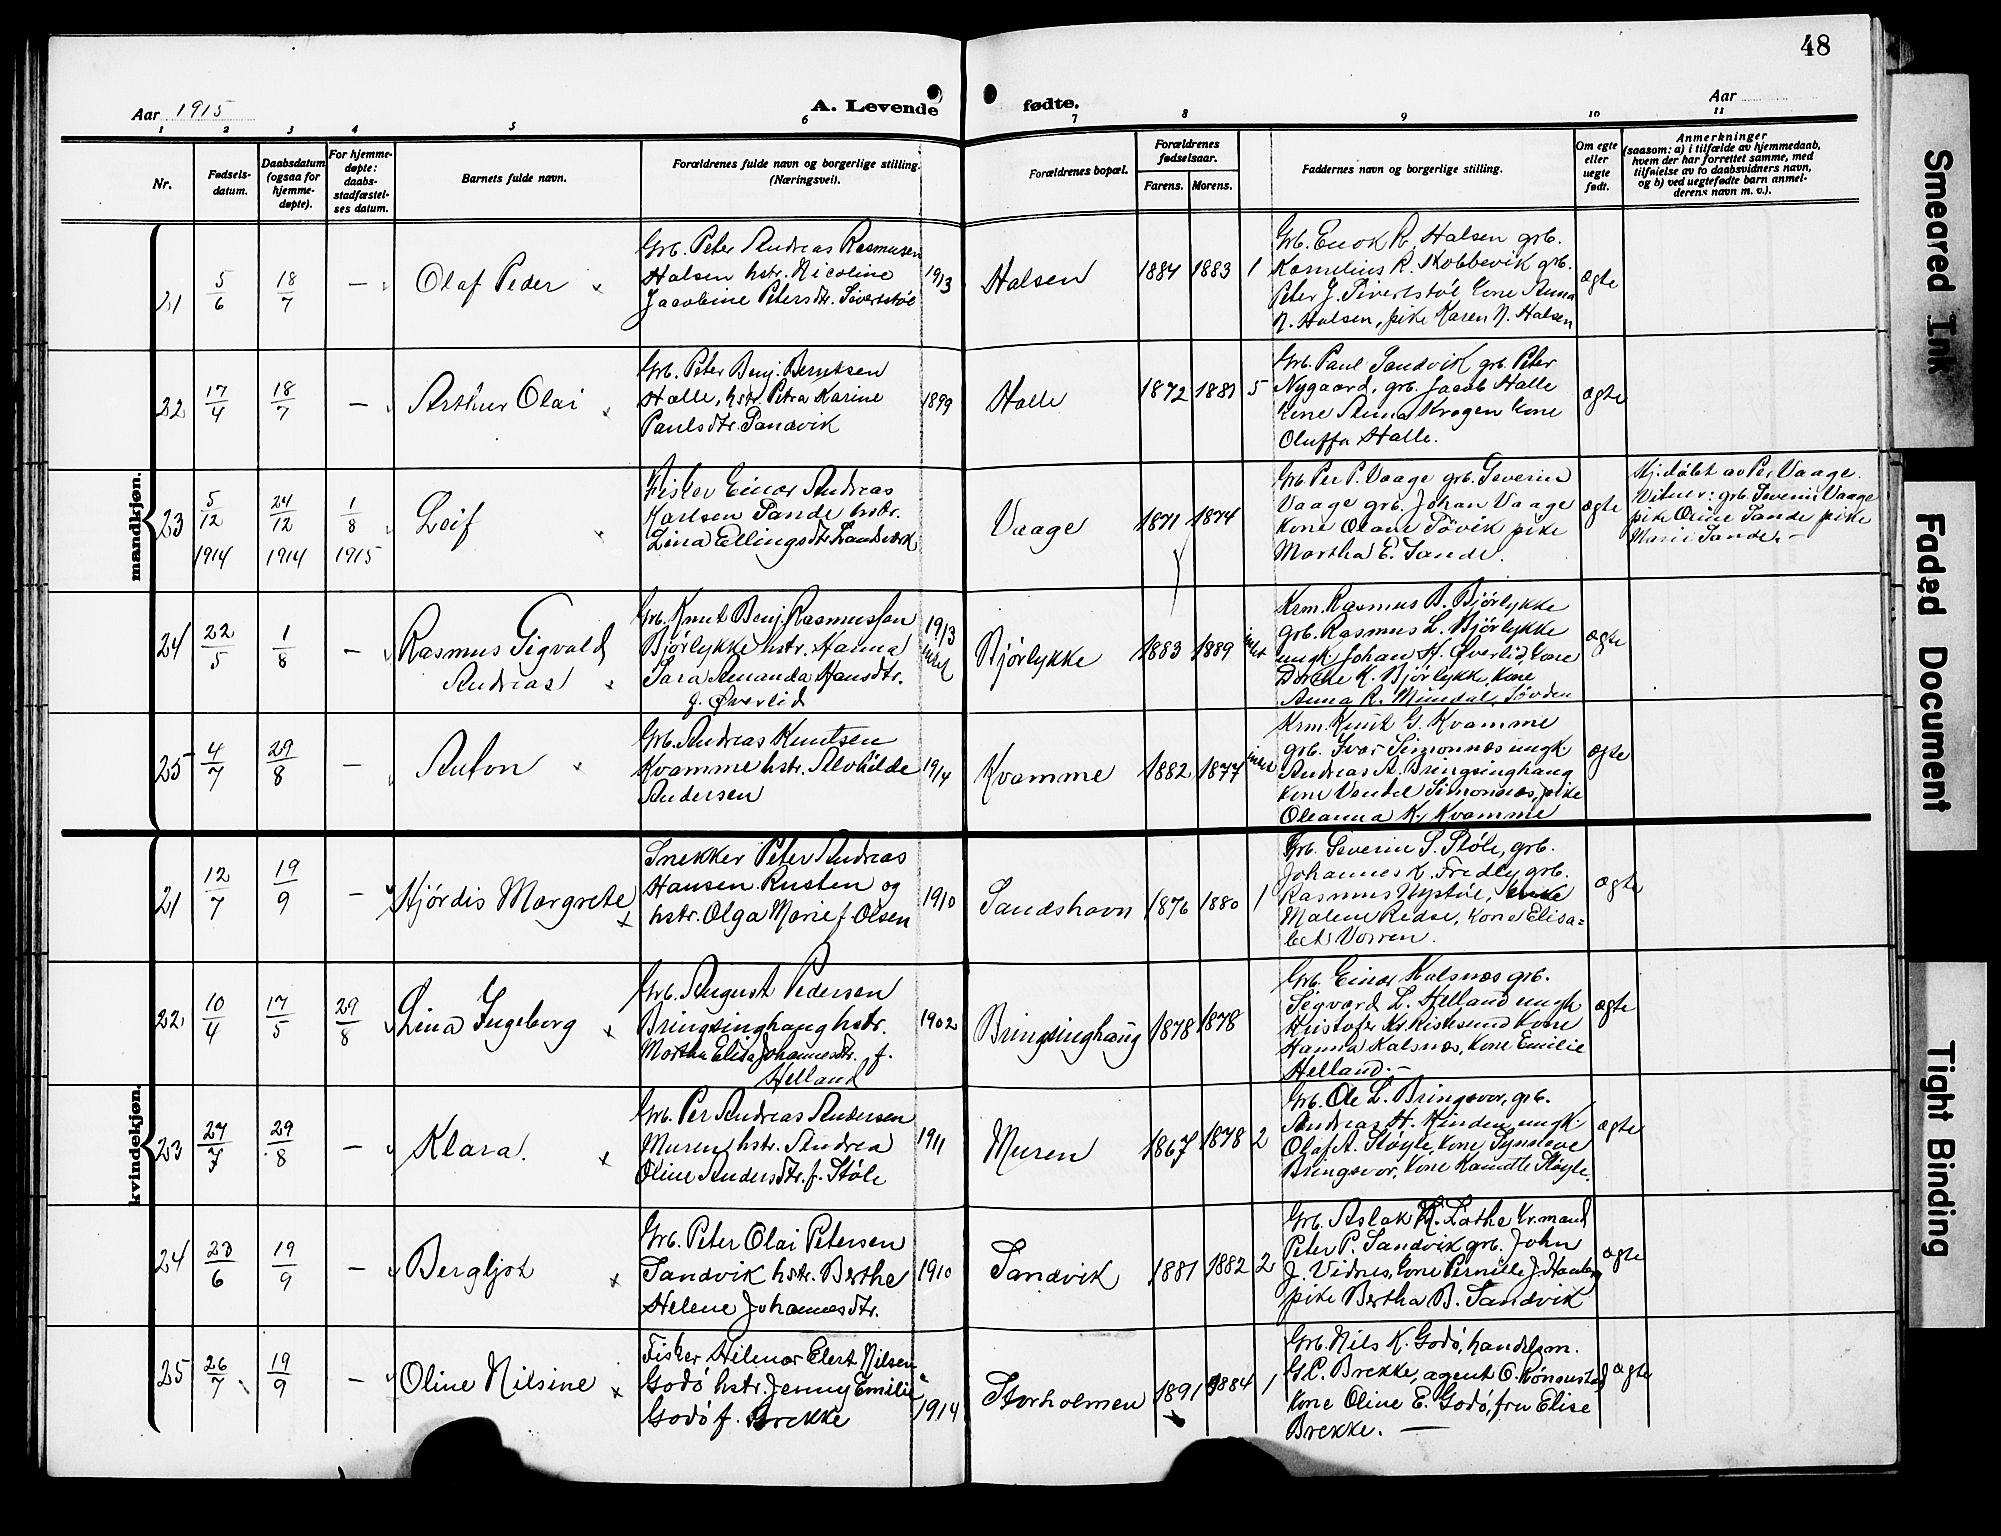 48
Aar 1915
A. Levende
fødte.
Aar
1 2 3 4 5 6 7 8 9 10 11
Nr.
Fødsels-
datum.
Daabsdatum
(ogsaa for
hjemme-
døpte).
For hjemme-
døpte:
daabs-
stadfæstel-
ses datum.
Barnets fulde navn.
Forældrenes fulde navn og borgerlige stilling.
(Næringsvei).
Forældrenes bopæl.
Forældrenes
fødselsaar.
Farens. Morens.
Faddernes navn og borgerlige stilling.
Om egte
eller
uegte
født.
Anmerkninger
(saasom: a) i tilfælde av hjemmedaab,
hvem der har forrettet samme, med
tilføielse av to daabsvidners navn,
og b) ved uegtefødte barn anmel-
derens navn m. v.).
mandkjøn.
21 5/6 18/7 — Olaf Peder
Grb. Peter Andreas Rasmusen
Halsen hstr. Nicoline
Jacobine Petersdtr. Sivertstøl
1913
Halsen 1884 1883 1
Grb. Enok R. Halsen grb.
Kornelius R. Skobbevik grb.
Peter J. Sivertstøl kone Anna
N. Halsen, pike Karen N. Halsen
ægte
22 17/4 18/7 — Arthur Olai
Grb. Peter Benj. Berntsen
Halle, hstr. Petra Karine
Paulsdtr. Sandvik
1899
Halle 1872 1881 5
Grb. Paul Sandvik grb. Peter
Nygaard, grb. Jacob Halle
kone Anna Krogen kone
Oluffa Halle.
ægte
23 5/12 1914 24/12 1914 1/8 1915 Leif
Fisker Einar Andreas
Karlsen Sande hstr.
Lina Ellingsdtr. Landsverk
Vaage 1871 1874
Grb. Per P. Vaage grb. Severin
Vaage grb. Johan Vaage
kone Olane Søvik pike
Martha E. Sande.
ægte
Hj.døbt av Per Vaage.
Vitner: grb. Severin Vaage
pike Oline Sande pike
Marie Sande. —
24 22/5 1/8 — Rasmus Sigvald
Andreas
Grb. Knut Benj. Rasmussen
Bjørlykke hstr. Hanna
Sara Amanda Hansdtr.
f. Øverlid
1913
Bjørlykke 1883 1889
Krm. Rasmus B. Bjørlykke
grb. Rasmus L. Bjørlykke
ungk. Johan H. Øverlid, kone
Dorthe K. Bjørlykke, kone
Anna R. Mundal, Søvden
ægte
25 4/7 29/8 — Anton
Grb. Andreas Knutsen
Kvamme hstr. Alvhilde
Andersen
1914
Kvamme 1882 1877
Krm. Knut G. Kvamme
grb. Ivar Simonnæs ungk.
Andreas A. Bringsinghaug
kone Vendel Simonnæs, pike
Oleanna K. Kvamme
ægte
kvindekjøn.
21 12/7 19/9 — Hjørdis Margrete
Snekker Peter Andreas
Hansen Rusten og
hstr. Olga Marie f. Olsen
1910
Sandshavn 1876 1880 1
Grb. Severin S. Støle, grb.
Johannes K. Fredly grb.
Rasmus Nystøl, enke
Malene Redse, kone Elisa=
bet Vorren.
ægte
22 10/4 17/5 29/8 Lina Ingeborg
Grb. August Pedersen
Bringsinghaug hstr.
Martha Elisa Johannesdtr. f.
Helland
1902
Bringsinghaug 1878 1878
Grb. Einar Kalsnæs grb.
Sigvard L. Helland ungk.
Kristofer Kr. Riskesund kone
Hanna Kalsnæs, kone Emilie
Helland. —
ægte
23 27/7 29/8 — Klara.
Grb. Per Andreas Andersen
Muren hstr. Andrea
Oline Andersdtr. f. Støle
1911
Muren 1867 1878 2
Grb. Ole L. Bringsvor, grb.
Andreas H. Hinden, ungk.
Olaf A. Støyle, kone Synneve
Bringsvor, kone Støyle.
ægte
24 23/6 19/9 — Bergljot
Grb. Peter Olai Petersen
Sandvik hstr. Berthe
Helene Johannesdtr.
1910
Sandvik 1881 1882 2
Grb. Aslak K. Lothe kr.mand
Peter P. Sandvik grb. John
J. Vidnes, kone Pernille J.
pike Bertha B. Sandvik
ægte
25 26/7 19/9 — Oline Nilsine
Fisker Hilmar Elert Nilsen
Godø hstr. Jenny Emilie
Godø f. Brekke
1914
Storholmen 1891 1884 1
Grb. Nils K. Godø, handelsm.
G.P. Brekke, agent O. Rønnestad
kone Oline E. Godø, fru Elise
Brekke. —
ægte
Smeared Ink
Faded Document
Tight Binding